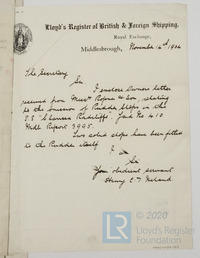 Lloyd's Register of British & Foreign Shipping.
Royal Exchange,
Middlesbrough, November 16th 19
The Secretary
Sir
I enclose Owners letter
received from Messrs Ropner & Son relating
to the of Rudder Stops in the
S.S. " Radcliffe" No 410
Mdb Report 3995.
Two solid stops have been fitted
to the Rudder itself.
I am
Sir
Your obedient servant
Henry
© 2020
Lloyd's Register
Foundation